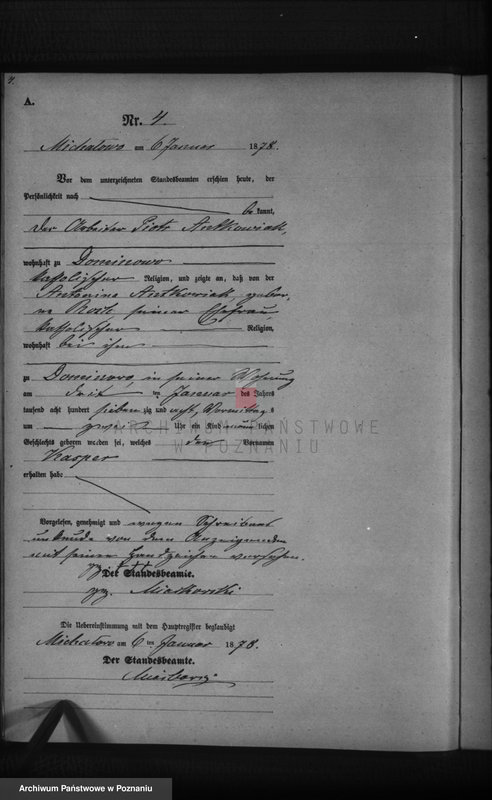 4.
A.
Nr. 4.
Michałowo am 6 Januar 1878.
Vor dem unterzeichneten Standesbeamten erschien heute, der
Persönlichkeit nach
be kannt,
der Arbeiter Piotr Antkowiak,
wohnhaft zu Dominowo
katholischer Religion, und zeigte an, daß von der
Antonina Antkowiak, gebor
ne, seiner Ehefrau,
katholischer Religion,
wohnhaft bei ihm
zu Dominowo, in seiner Wohnung
am Januar des Jahres
tausend acht hundert sieben zig und acht, Vormittag s
um zwei Uhr ein Kind männlichen
Geschlechts geboren worden sei, welches den Vornamen
Kasper
erhalten habe
Vorgelesen, genehmigt und wegen Schreibens
unkunde von dem Anzeigenden
mit seinem Handzeichen versehen.
Der Standesbeamte.
gez. Miaskowski
Die Uebereinstimmung mit dem Hauptregister beglaubigt
Michałowo am 6 ten Januar 1878.
Der Standesbeamte.
ARCHIWUM PAŃSTWOWE
W POZNANIU
Archiwum Państwowe w Poznaniu